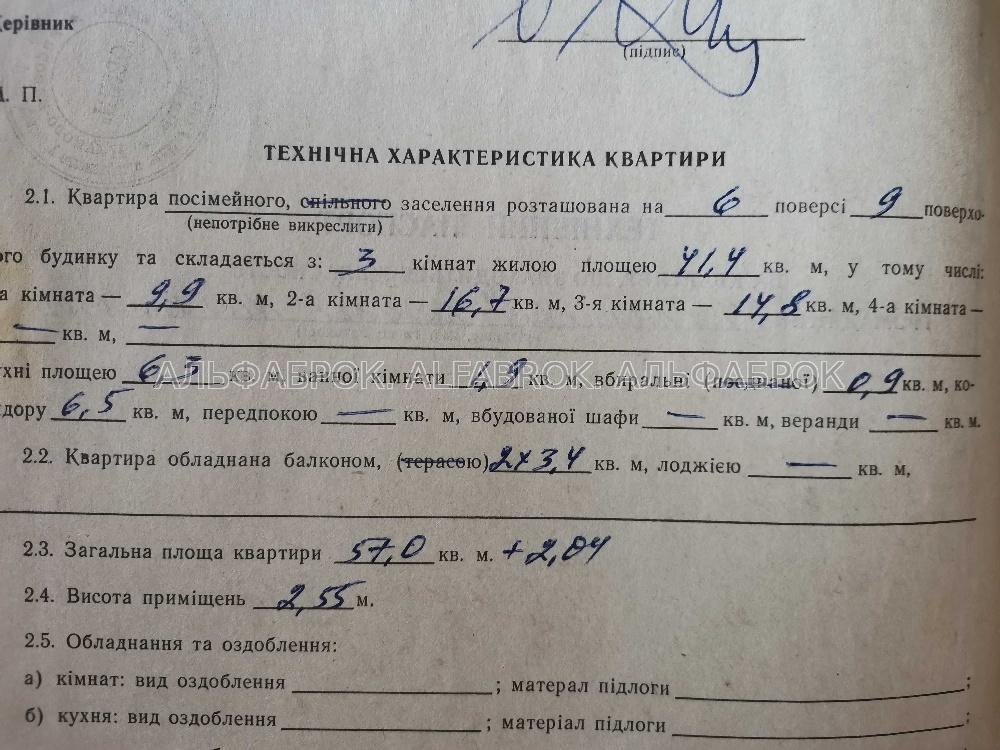 Керівник
(підпис)
М. П.
ТЕХНІЧНА ХАРАКТЕРИСТИКА КВАРТИРИ
2.1. Квартира посімейного, спільного заселення розташована на 6 поверсі 9 поверхо-
(непотрібне викреслити)
ого будинку та складається з: 3 кімнат жилою площею 41,4 кв. м, у тому числі:
а кімната — 9,9 кв. м, 2-а кімната — 16,7 кв. м, 3-я кімната — 14,8 кв. м, 4-а кімната —
— кв. м, —
ухні площею 6,3 кв. м, ванної кімнати 1,9 кв. м, вбиральні (поєднаної) 0,9 кв. м, ко-
идору 6,5 кв. м, передпокою — кв. м, вбудованої шафи — кв. м, веранди — кв. м.
АЛЬФАБРОК ALFABROK АЛЬФАБРОК
2.2. Квартира обладнана балконом, (терасою) 2x3,4 кв. м, лоджією — кв. м,
2.3. Загальна площа квартири 57,0 кв. м. +2,04
2.4. Висота приміщень 2,55 м.
2.5. Обладнання та оздоблення:
а) кімнат: вид оздоблення ; матерал підлоги ;
б) кухня: вид оздоблення ; матеріал підлоги ;